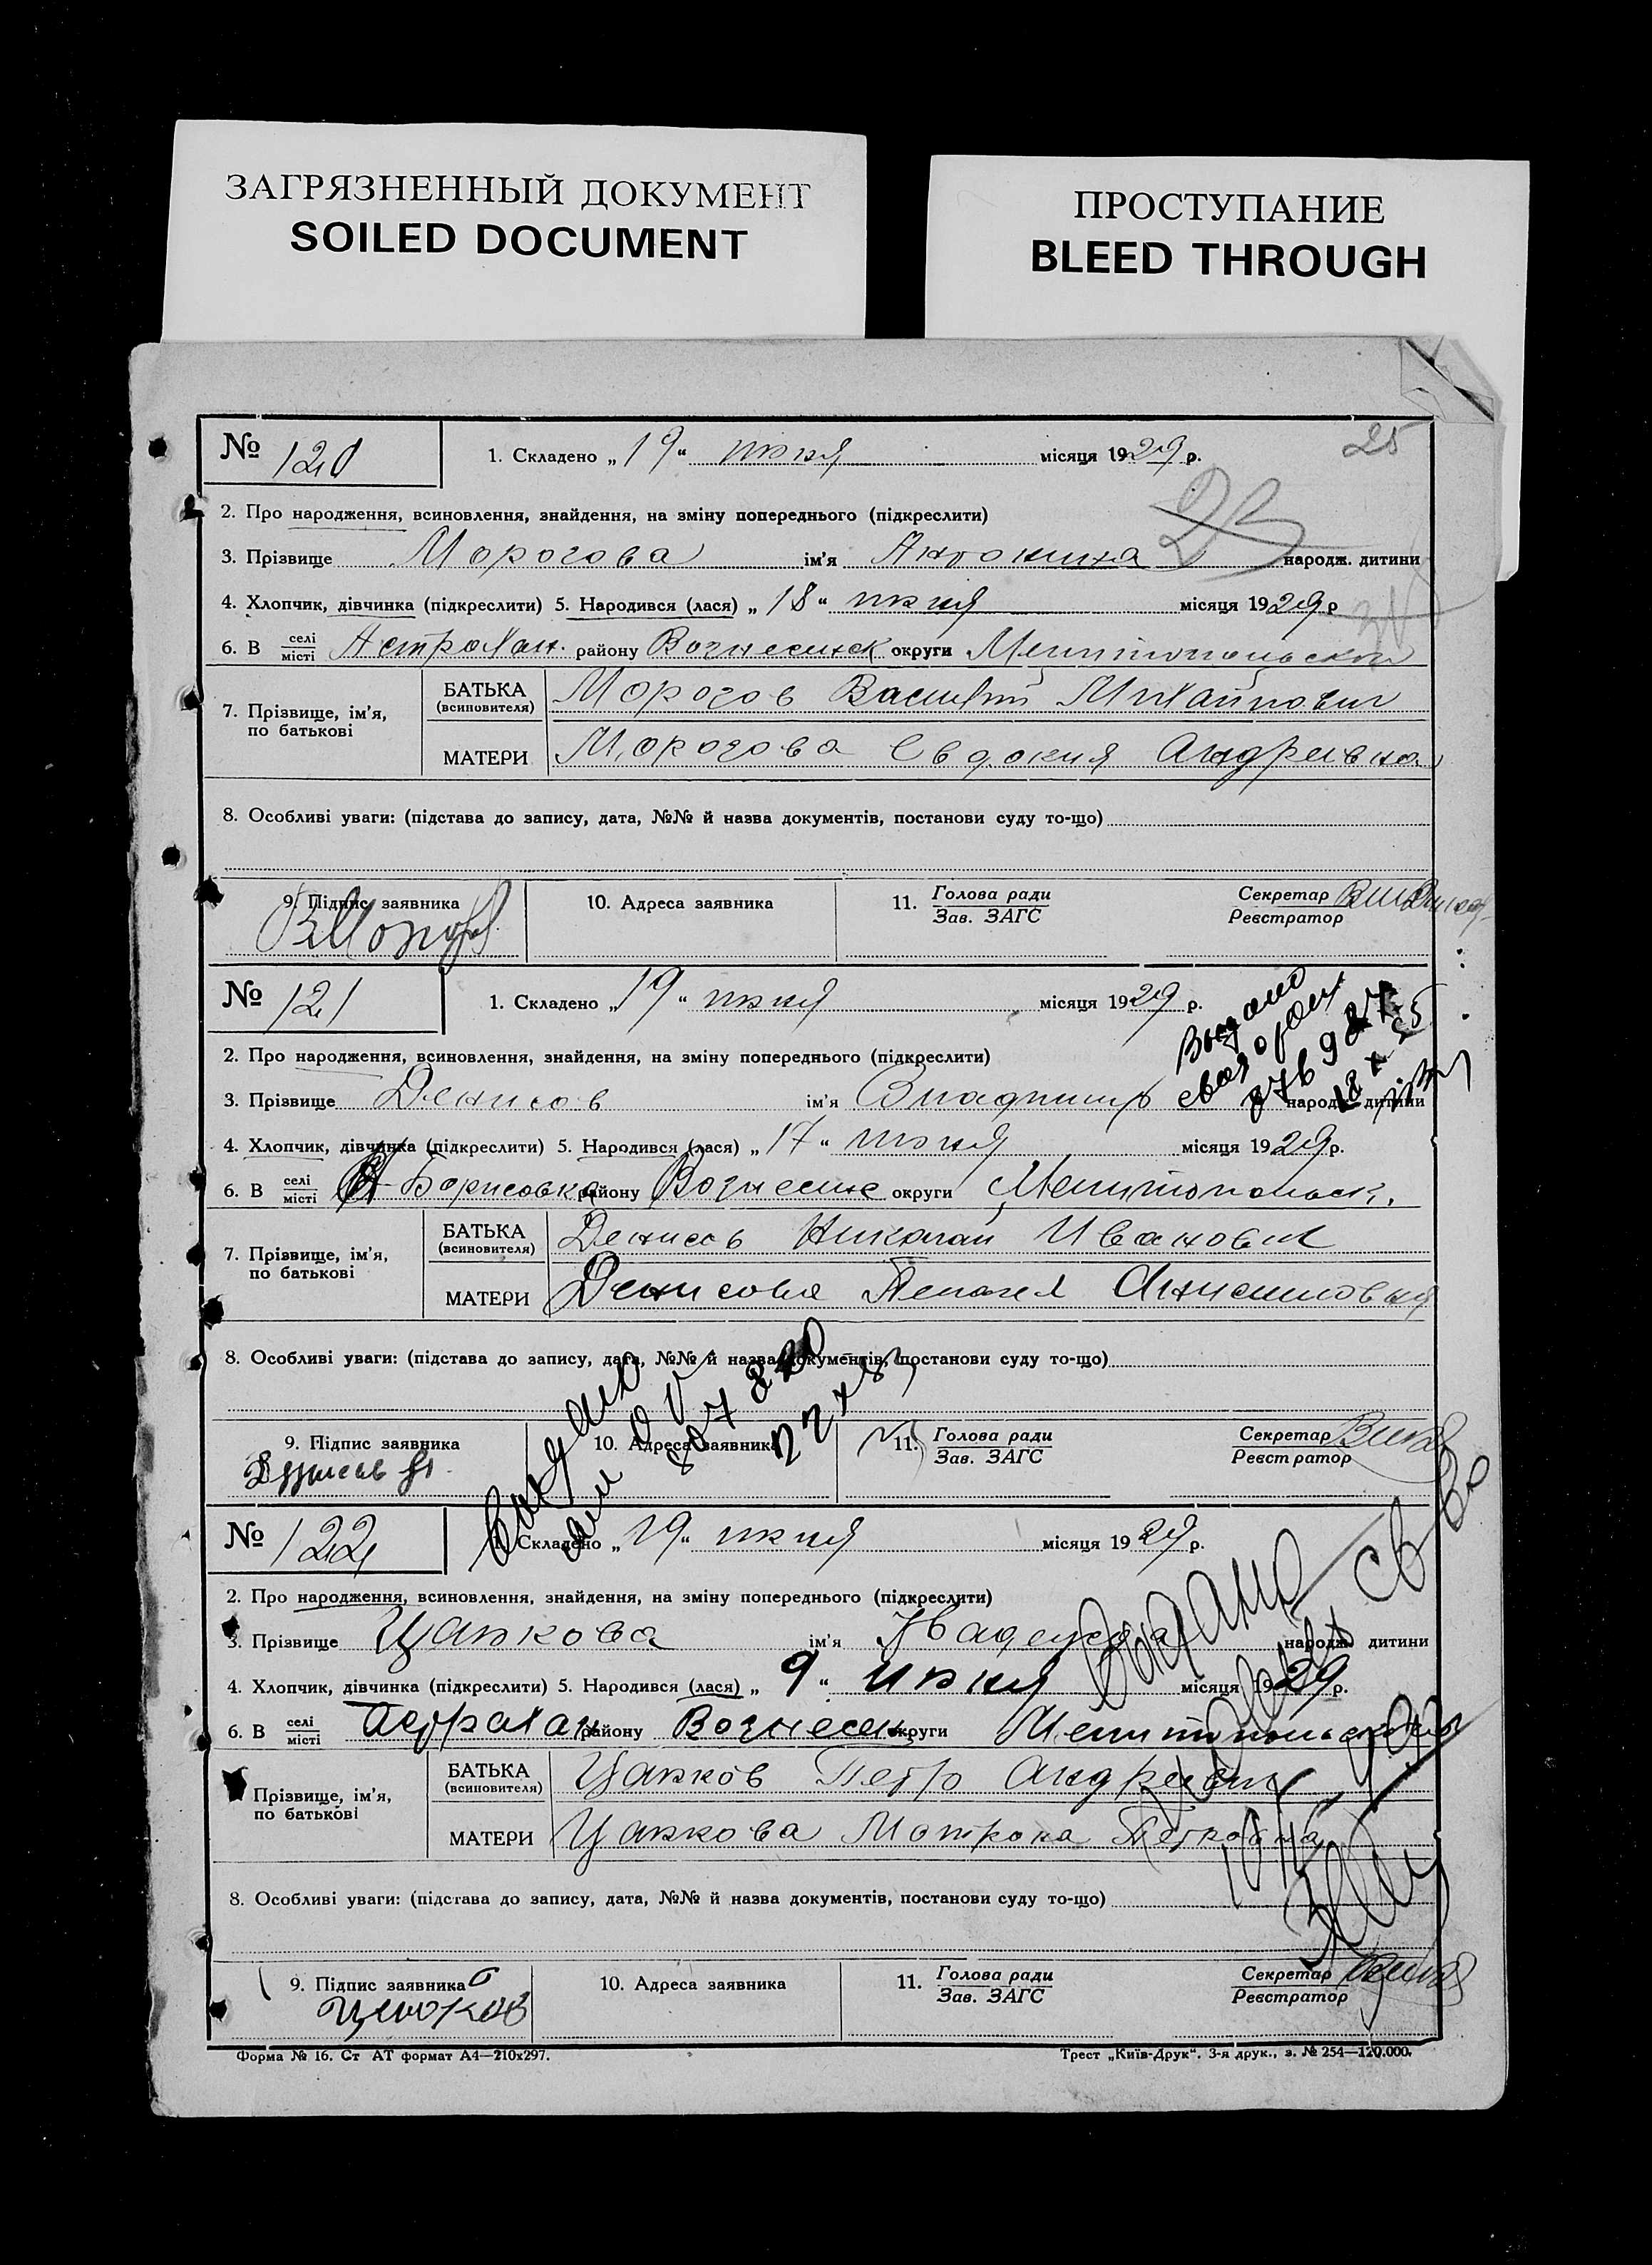 ЗАГРЯЗНЕННЫЙ ДОКУМЕНТ
SOILED DOCUMENT
ПРОСТУПАНИЕ
BLEED THROUGH
25
№ 120 1. Складено „19“ июня місяця 1929 р.
2. Про народження, всиновлення, знайдення, на зміну попереднього (підкреслити)
3. Прізвище Морогова ім'я Антонина народж. дитини
4. Хлопчик, дівчинка (підкреслити) 5. Народився (лася) „18“ июня місяця 1929 р
6. В селі місті Астрахан. району Вознесенск округи Мелитопольской
7. Прізвище, ім'я, по батькові
БАТЬКА (всиновителя) Морогов Василий Михайлович
МАТЕРИ Морогова Евдокия Андреевна
8. Особливі уваги: (підстава до запису, дата, №№ й назва документів, постанови суду то-що)
9. Підпис заявника 10. Адреса заявника 11. Голова ради Зав. ЗАГС Секретар Реєстратор
№ 121 1. Складено „19“ июня місяця 1929 р.
Выдано
2. Про народження, всиновлення, знайдення, на зміну попереднього (підкреслити)
3. Прізвище Денисов ім'я Владимир народж. дитини
4. Хлопчик, дівчинка (підкреслити) 5. Народився (лася) „17“ июня місяця 1929 р.
6. В селі місті Борисовка району Вознесенс округи Мелитопольск.
7. Прізвище, ім'я, по батькові
БАТЬКА (всиновителя) Денисов Николай Иванович
МАТЕРИ Денисова Пелагея Анисимовна
8. Особливі уваги: (підстава до запису, дата, №№ й назва документів, постанови суду то-що)
9. Підпис заявника 10. Адреса заявника 11. Голова ради Зав. ЗАГС Секретар Реєстратор
Выдано
№ 122 1. Складено „19“ июня місяця 1929 р.
2. Про народження, всиновлення, знайдення, на зміну попереднього (підкреслити)
Выдано св во
3. Прізвище Цапкова ім'я Надежда народж. дитини
4. Хлопчик, дівчинка (підкреслити) 5. Народився (лася) „9“ июня місяця 1929 р.
6. В селі місті Астрахан району Вознесен округи Мелитопольской
Прізвище, ім'я, по батькові
БАТЬКА (всиновителя) Цапков Петр Андреевич
МАТЕРИ Цапкова Мотрона Петровна
8. Особливі уваги: (підстава до запису, дата, №№ й назва документів, постанови суду то-що)
9. Підпис заявника 10. Адреса заявника 11. Голова ради Зав. ЗАГС Секретар Реєстратор
Форма № 16. Ст АТ формат А4—210х297. Трест „Київ-Друк“. 3-я друк., з. № 254—120.000.